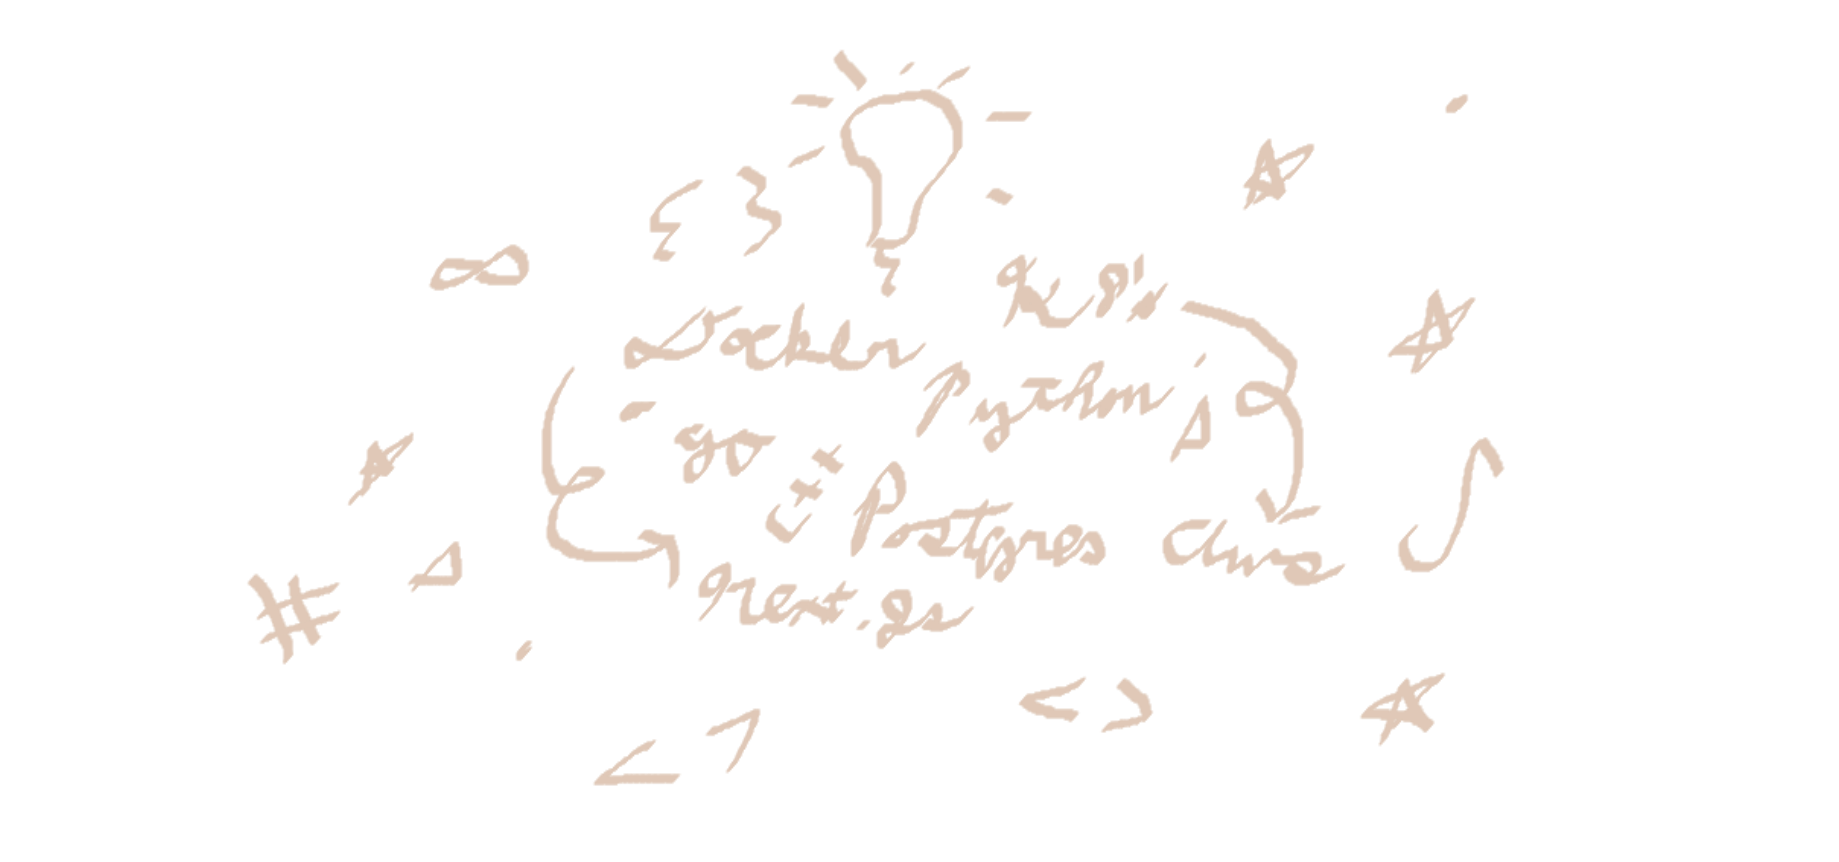 { }
∞
K8's
Docker
Python
go
C++
Postgres
next.js
#
< >
< >